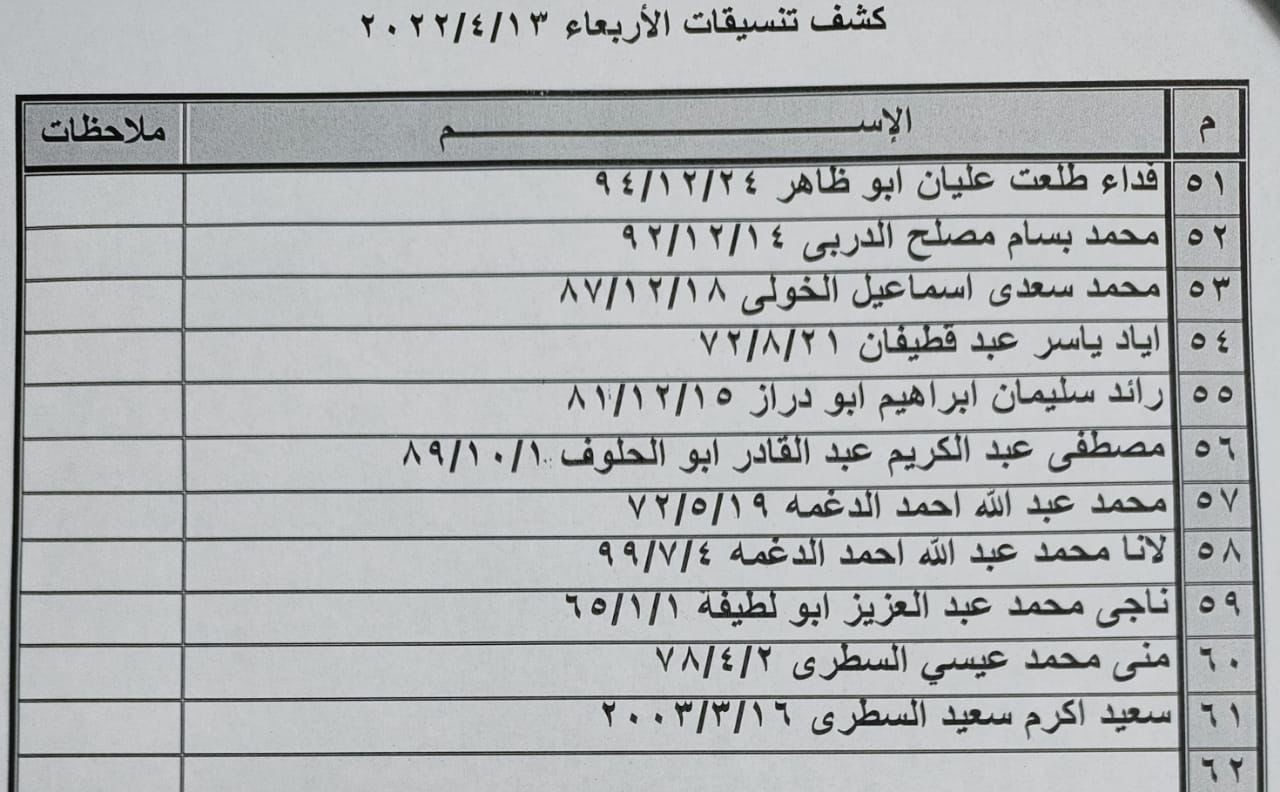 كشف تنسيقات الأربعاء ٢٠٢٢/٤/١٣
م الإســـــــــــــــــــــــم ملاحظات
٥١ فداء طلعت عليان ابو ظاهر ٩٤/١٢/٢٤
٥٢ محمد بسام مصلح الدربى ٩٢/١٢/١٤
٥٣ محمد سعدى اسماعيل الخولى ٨٧/١٢/١٨
٥٤ اياد ياسر عبد قطيفان ٧٢/٨/٢١
٥٥ رائد سليمان ابراهيم ابو دراز ٨١/١٢/١٥
٥٦ مصطفى عبد الكريم عبد القادر ابو الحلوف ٨٩/١٠/١
٥٧ محمد عبد الله احمد الدغمه ٧٢/٥/١٩
٥٨ لانا محمد عبد الله احمد الدغمه ٩٩/٧/٤
٥٩ ناجى محمد عبد العزيز ابو لطيفة ٦٥/١/١
٦٠ منى محمد عيسي السطرى ٧٨/٤/٢
٦١ سعيد اكرم سعيد السطرى ٢٠٠٣/٣/١٦
٦٢